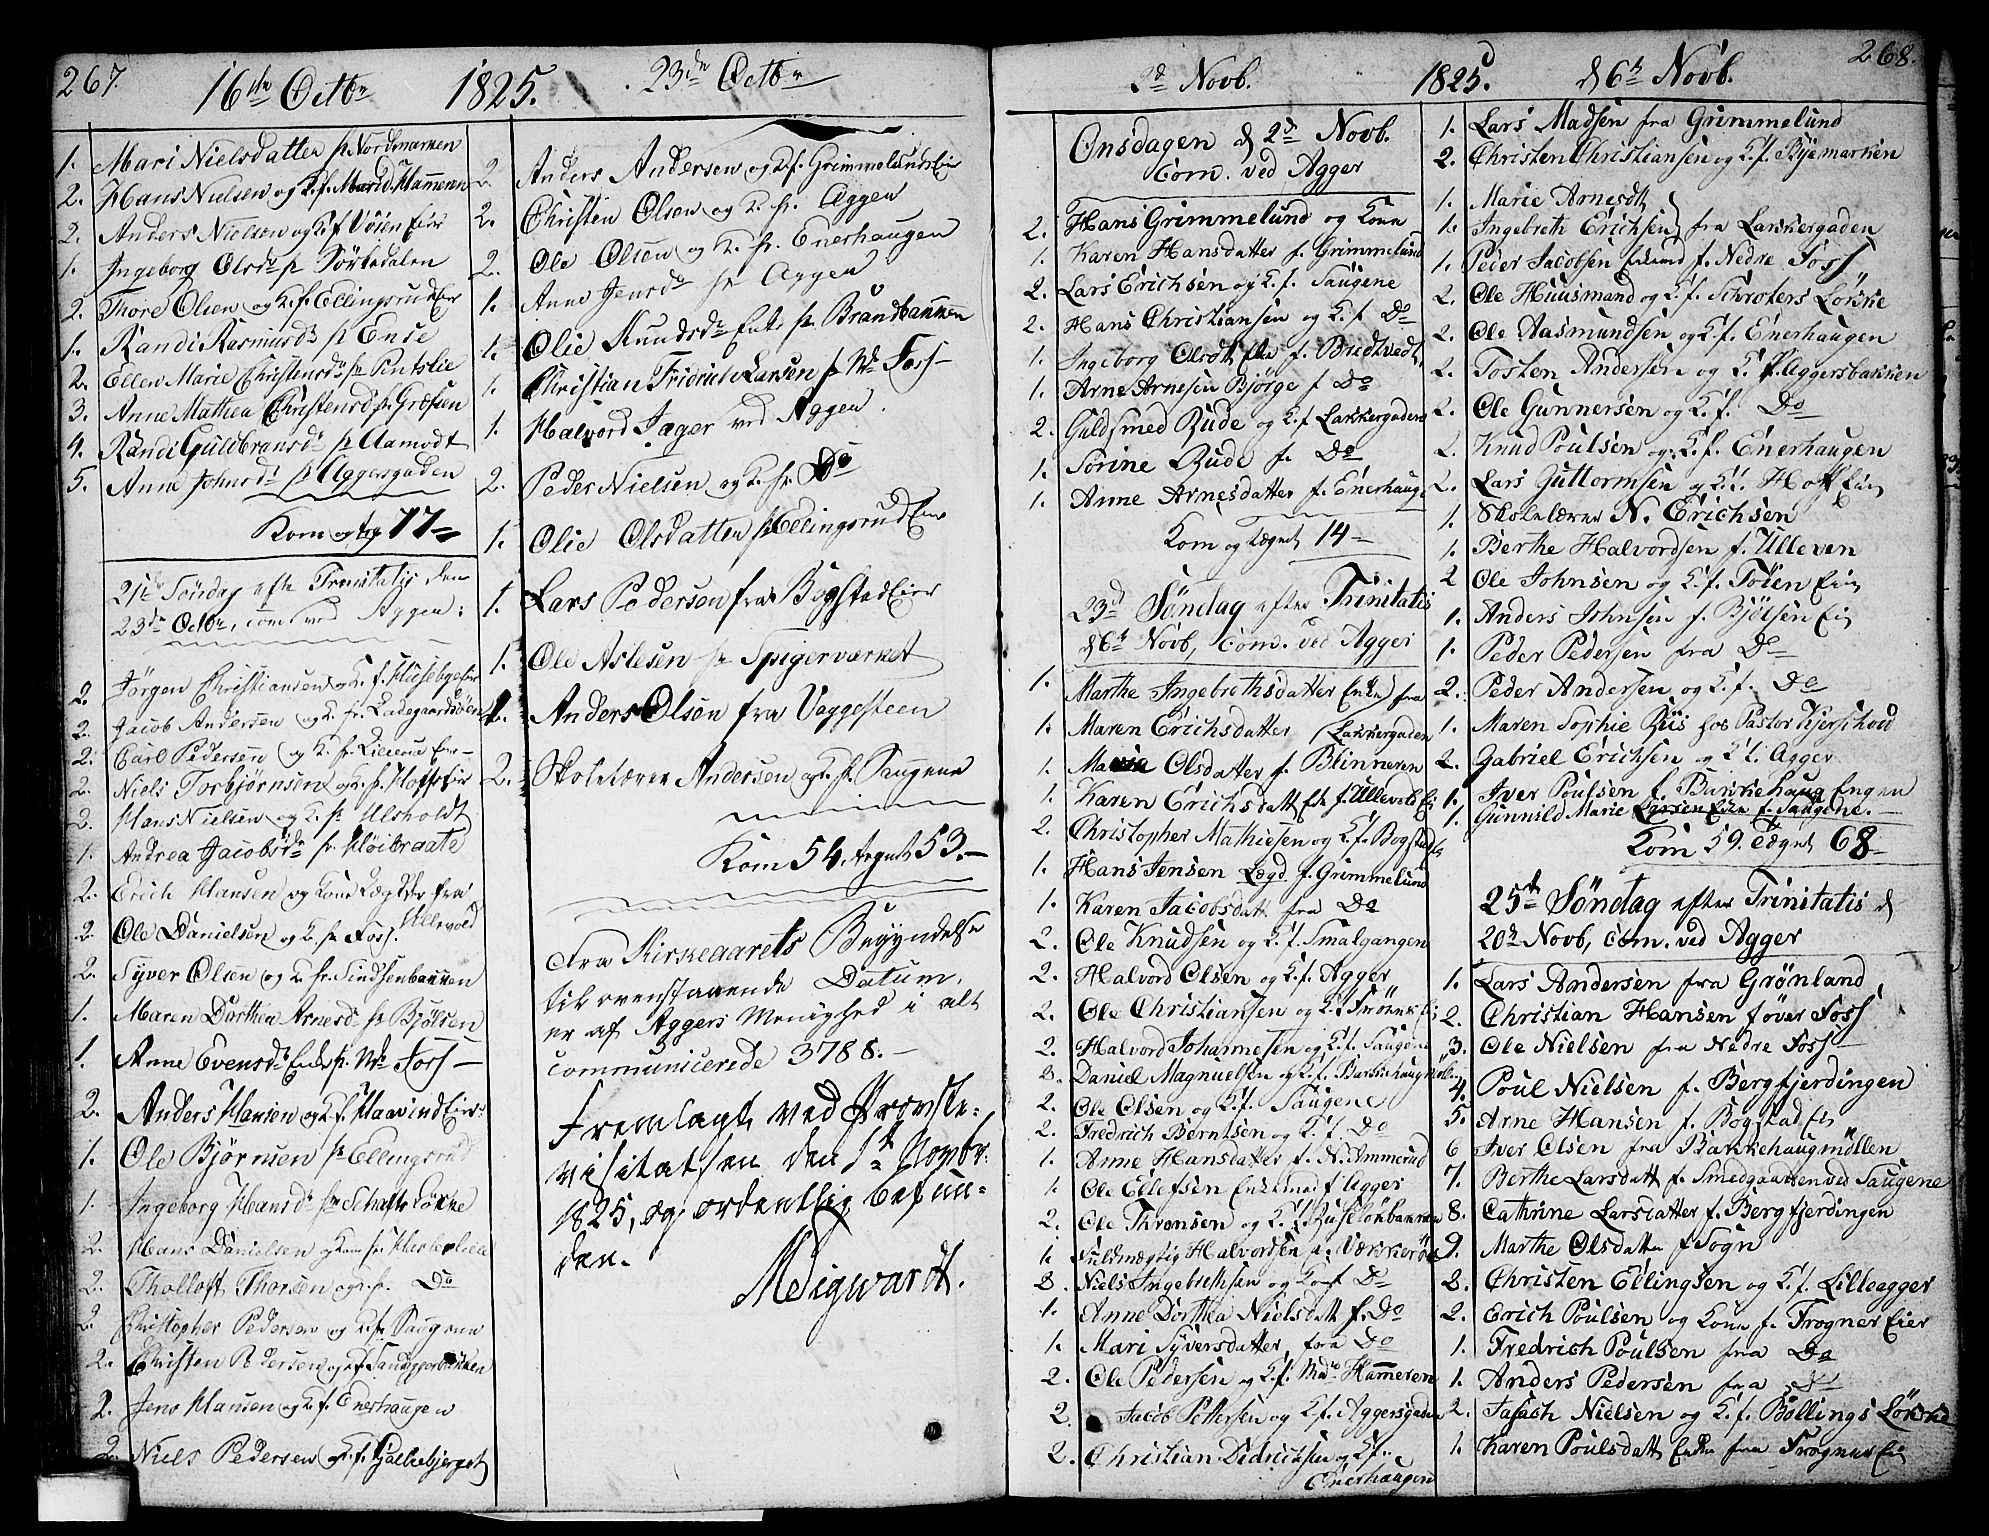 267. 16de Octbr 1825. 23de Octbr
1. Mari Nielsdatter fr Nordmarken
2. Hans Nielsen og K. f. Marid. Hammeren
2. Anders Nielsen og K f Vøien Eier
1. Ingeborg Olsdr fr Sørkedalen
2. Thore Olsen og K. f. Ellingsrud Eier
1. Randi Rasmusdr fr Ense
2. Ellen Marie Christensdr fr Pintslie
3. Anne Mathea Christensd fr. Græsien
4. Randi Guldbransdr fr Aamodt
5. Anne Johnsdr fr Aggersgaden
Kom og tg 77
21de Søndag efter Trinitatis den
23de Octbr, com. ved Aggen:
2. Jørgen Christiansen og K. f. Husebye Eier
2. Jacob Andersen og K. fr. Ladegaardsøen
2. Carl Pedersen og K. fr. Lilleoue Eier
2. Niels Torbjørnsen og K. fr. Hoffs Eier
2. Hans Nielsen og K. fr Ulsholdt
1. Andrea Jacobsdr fr Kløibraate
2. Erich Hansen og Kone Lægdr fra Ullevold
2. Ole Danielsen og K. fr Foss.
2. Syver Olsen og K fr. Sindsenbakken
1. Maren Dorthea Arnesdr fr Bjølsen
1. Anne Evensdr Enke fr. Ndr Foss
2. Anders Hansen og K. f. Haavind Eier
1. Ole Bjørnsen fr Ellingsrud
1. Ingeborg Hansdr fr Schafts Løkke
2. Hans Danielsen og Kone fr. Kloster
2. Tholloff Thorsen og fr. Do
2. Christopher Pedersen og K. fr Saugene
2. Christen Pedersen og K f Sandaggerbakken
2. Jens Hansen og K. f. Enerhaugen
2. Niels Pedersen og K. f. Galkebjerget
2. Anders Andersen og K. f. Grimmelunds Eier
2. Christen Olsen og K. fr. Aggen
2. Ole Olsen og K. fr. Enerhaugen
1. Anne Jensdr fr Aggen
1. Olie Knudsdr Enke fr Brandbakken
1. Christian Fridrich Larsen fr Ndr Foss
1. Halvord Jager ved Aggen.
2. Peder Nielsen og K. fr. Do
1. Olie Olsdatter fr Ellingsrud Eier
1. Lars Pedersen fra Bogstad Eier
1. Ole Aslesen fr Spigerværket
1. Anders Olsen fra Vaggesteen
2. Skolelærer Andersen og K. fr. Saugene
Kom 54, tegnet 53.
Fra Kirkeaarets Begyndelse
til ovenstaaende Datum,
er af Aggers Menighed i alt
communicerede 3788.
Fremlagt ved Provste-
visitatsen den 1st Nombr.
1825, og ordentlig befun-
den.
M Sigwardt.
2d Novb. 1825. d 6te Novb. 268.
Onsdagen d 2d Novb.
Com. ved Agger
2. Hans Grimmelund og Kone
1. Karen Hansdatter f. Grimmelund
2. Lars Erichsen og K. f. Saugene
2. Hans Christiansen og K. f. Do
1. Ingeborg Olsdt f. Bredtvedt
1. Arne Arnesen Bjørge f Do
2. Guldsmed Rude og K. f Lakkergaden
1. Sorine Rude f. Do
1. Anne Arnesdatter f. Enerhaug
Kom og tegnet 14
23d Søndag efter Trinitatis
d 6te Novb, com. ved Agger
1. Marthe Ingebrethsdatter Enke fra
1. Maren Erichsdatter Lakkergaden
1. Marie Olsdatter f. Blinneren
1. Karen Erichsdatt Enke f. Ullevold Ei
2. Christopher Mathiesen og K. f. Bogstad
1. Hans Jensen Lægd. f. Grimmelund
1. Karen Jacobsdatt fra Do
2. Ole Knudsen og K. f. Smalgangen
2. Halvord Olsen og K. f. Agger
2. Ole Christiansen og K. f. Frøens Ei
2. Halvord Johannesen og K. f. Saugene
2. Daniel Magnuelsen og K. f. Bakkehaugmøl
2. Ole Olsen og K. f. Saugene
2. Fredrich Berntsen og K. f. Do
1. Anne Hansdatter f. N. Ammerud
1. Ole Ellefsen Enkemd f Agger
2. Ole Thronsen og K. f. Ruseløkbakken
1. Fuldmægtig Halvordsen f. Vækkerøe
2. Niels Ingebrethsen og Kone f Do
1. Anne Dorthea Nielsdatt f. Do
1. Mari Syversdatter fra Do
2. Ole Pedersen og K. f. Mads Hammeren
2. Jacob Pettersen og K. f. Aggersgaden
2. Christian Didrichsen og K f. Enerhaugen
1. Lars Madsen fra Grimmelund
2. Christen Christiansen og K. f. Byemarken
1. Marie Arnesdt
1. Ingebreth Erichsen fra Lakkergaden
1. Peder Jacobsen Enkemd f. Nedre Foss
2. Ole Huusmand og K. f. Schroters Løkke
2. Ole Aasmundsen og K. f. Enerhaugen
2. Tosten Andersen og K. f. Aggersbakken
2. Ole Gunnersen og K. f. Do
2. Knud Poulsen og K. f. Enerhaugen
2. Lars Guttormsen og K. f. Hoff Eier
1. Skolelærer N. Erichsen
1. Berthe Halvordsen f. Ulleven
2 Ole Johnsen og K. f. Tøien Eier
1. Anders Johnsen f. Bjølsen Ei
1. Peder Pedersen fra Do
2. Peder Andersen og K. f. Do
1. Maren Sophie Riis hos Pastor Kjerschow
2. Gabriel Erichsen og K f. Agger
1. Iver Poulsen f. Bakkehaug Engen
1. Gunnild Marie Larsen Enke f. Saugene.
Kom 59. tegnet 68
25de Søndag efter Trinitatis d
20de Novb, com. ved Agger
1. Lars Andersen fra Grønland
2. Christian Hansen f øver Foss
3. Ole Nielsen fra Nedre Foss
4. Poul Nielsen f. Bergfjerdingen
5. Arne Hansen f. Bogstad Ei
6 Iver Olsen fra Bakkehaugmøllen
7. Berthe Larsdatt f. Smedgaarden ved Saugene
8. Cathrine Larsdatter f. Bergfjerdingen
9. Marthe Olsdatter f Sogn
2. Christen Ellingsen og K. f. Lilleagger
2. Erich Poulsen og Kone f. Frogner Eier
1. Fredrich Poulsen fra Do
1. Anders Pedersen fra Do
2. Jasach Nielsen og K. f. Bøllings Løkke
1. Karen Poulsdatt Enke fra Frogner Ei